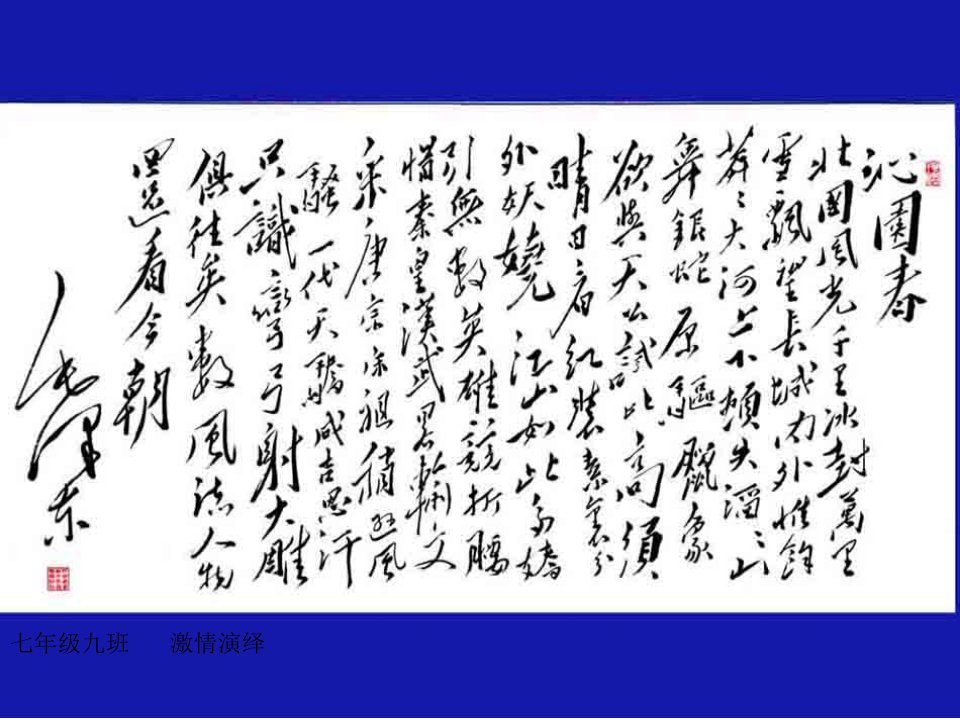 沁園春
北國風光千里冰封萬里
雪飄望長城內外惟餘
莽〻大河上下頓失滔〻山
舞銀蛇原驅臘象
欲與天公試比高須
晴日看紅裝素裹分
外妖嬈江山如此多嬌
引無數英雄競折腰
惜秦皇漢武畧輸文
采唐宗宋祖稍遜風
騷一代天驕成吉思汗
只識彎弓射大雕
俱往矣數風流人物
還看今朝
毛澤東
七年级九班 激情演绎